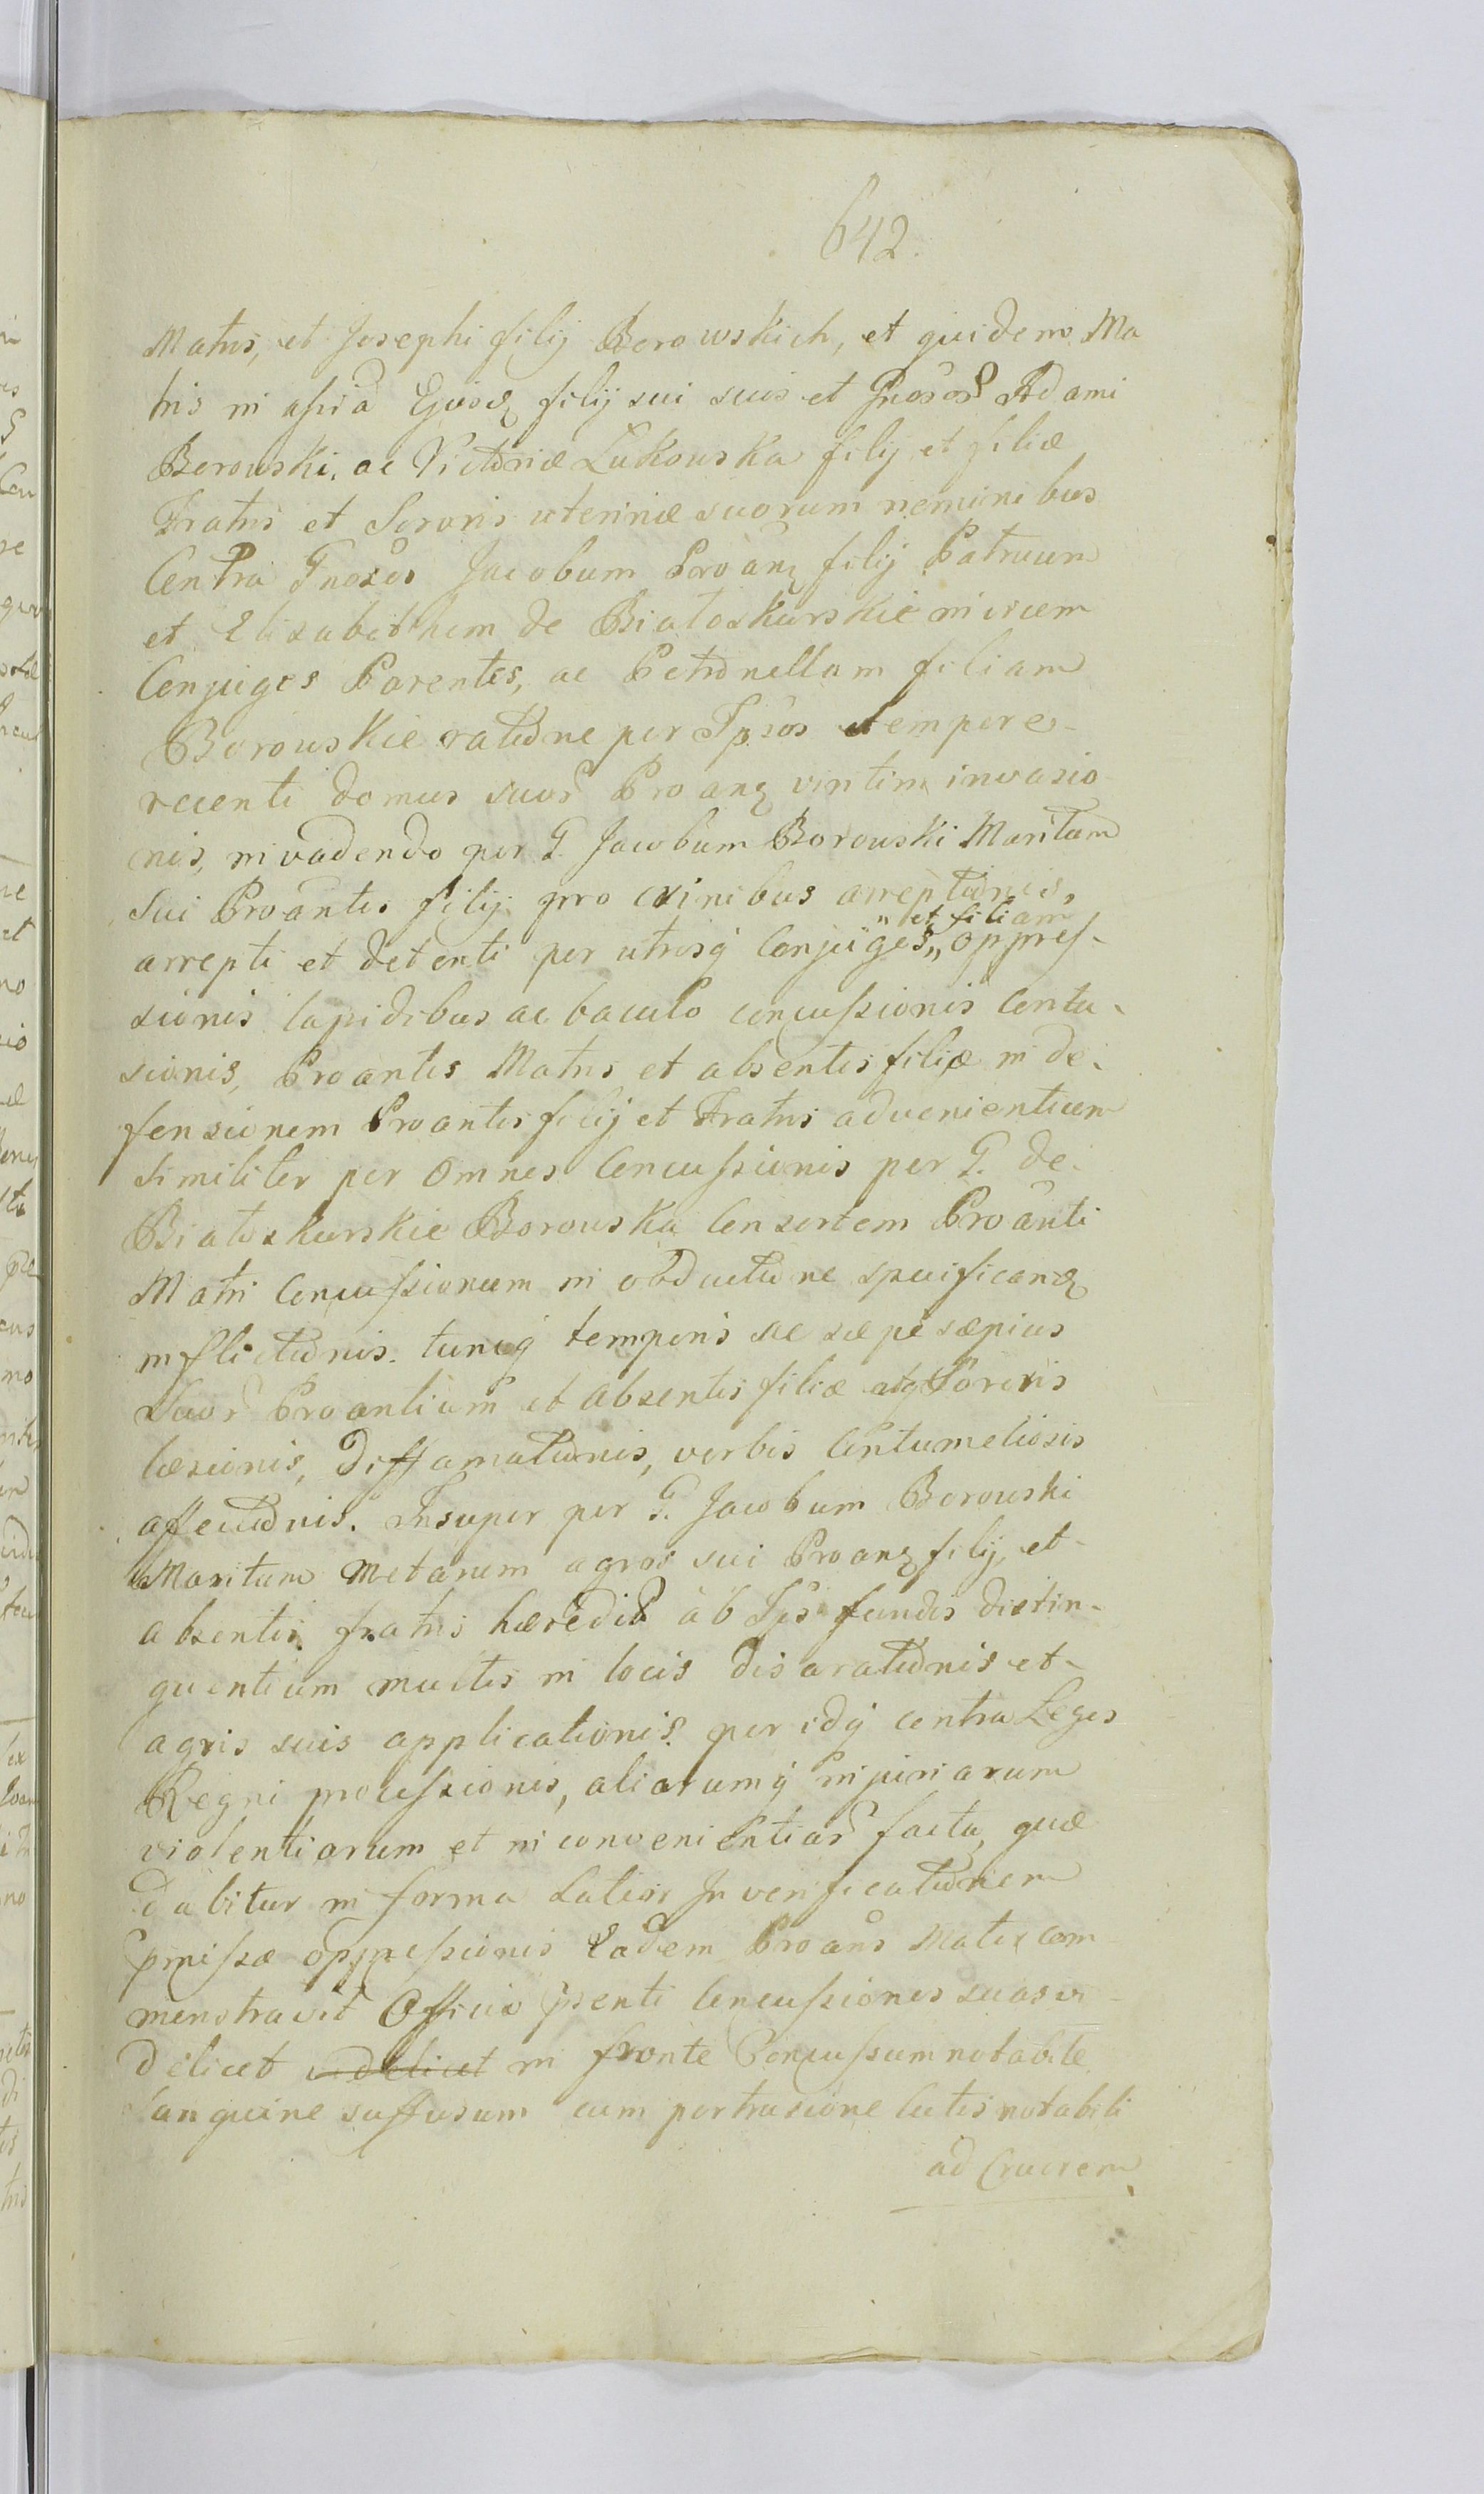 642.
Matris, et Josephi filij Borowskich, et quidem Ma
tris in assâ Ejusdq filij sui suis et Gnosor Adami
Borowski, ac Victoriæ Łukowska filij et filiæ
Fratris et Sororis uterinæ suorum neminibus
Contra Gnosos Jacobum Proanq filij Patruum
et Elisabetham de Białoskurskie invicem
Conjuges Parentes, ac Petronellam filiam
Borowskie ratione per Ipsos tempore
recenti domus suor Proanq vintim invasio
onis, invadendo per G. Jacobum Borowski Maritum
Sui Proantis filij pro crinibus arreptionis,
et filiam
arrepti et detenti per utrosq Conjuges,, oppres-
sionis lapidibus ac baculo concussionis Contu-
sionis, Proantis Matris et absentis filiæ in de-
fensionem Proantis filij et Fratris advenientium
Similiter per Omnes Concussionis per G. de
Białoskurskie Borowska Consortem Proanti
Matri Concussionum in obductione specificanq
inflictionis. tuncq temporis ac sæpe sæpius
Suor Proantium et absentis filiæ atq Sororis
læsionis, Diffamationis, verbis Contumeliosis
affectionis. Insuper per G. Jacobum Borowski
Maritum Metarum agros sui Proanq filij, et
absentis fratris hæredit ab Ips fundis distin-
guentium multis in locis disarationis et
agris suis applicationis per idq contra Leges
Regni processionis, aliarumq injuriarum
violentiarum et inconvenientiar facta, quæ
dabitur in forma Latiori In verificationem
pmissæ oppressionis Eadem Proans Mater com
monstravit Officio psenti Concussiones suas vi
delicet videlicet in fronte Concussum notabile
sanguine suffusum cum pertrusione cutis notabili
ad Cruorem